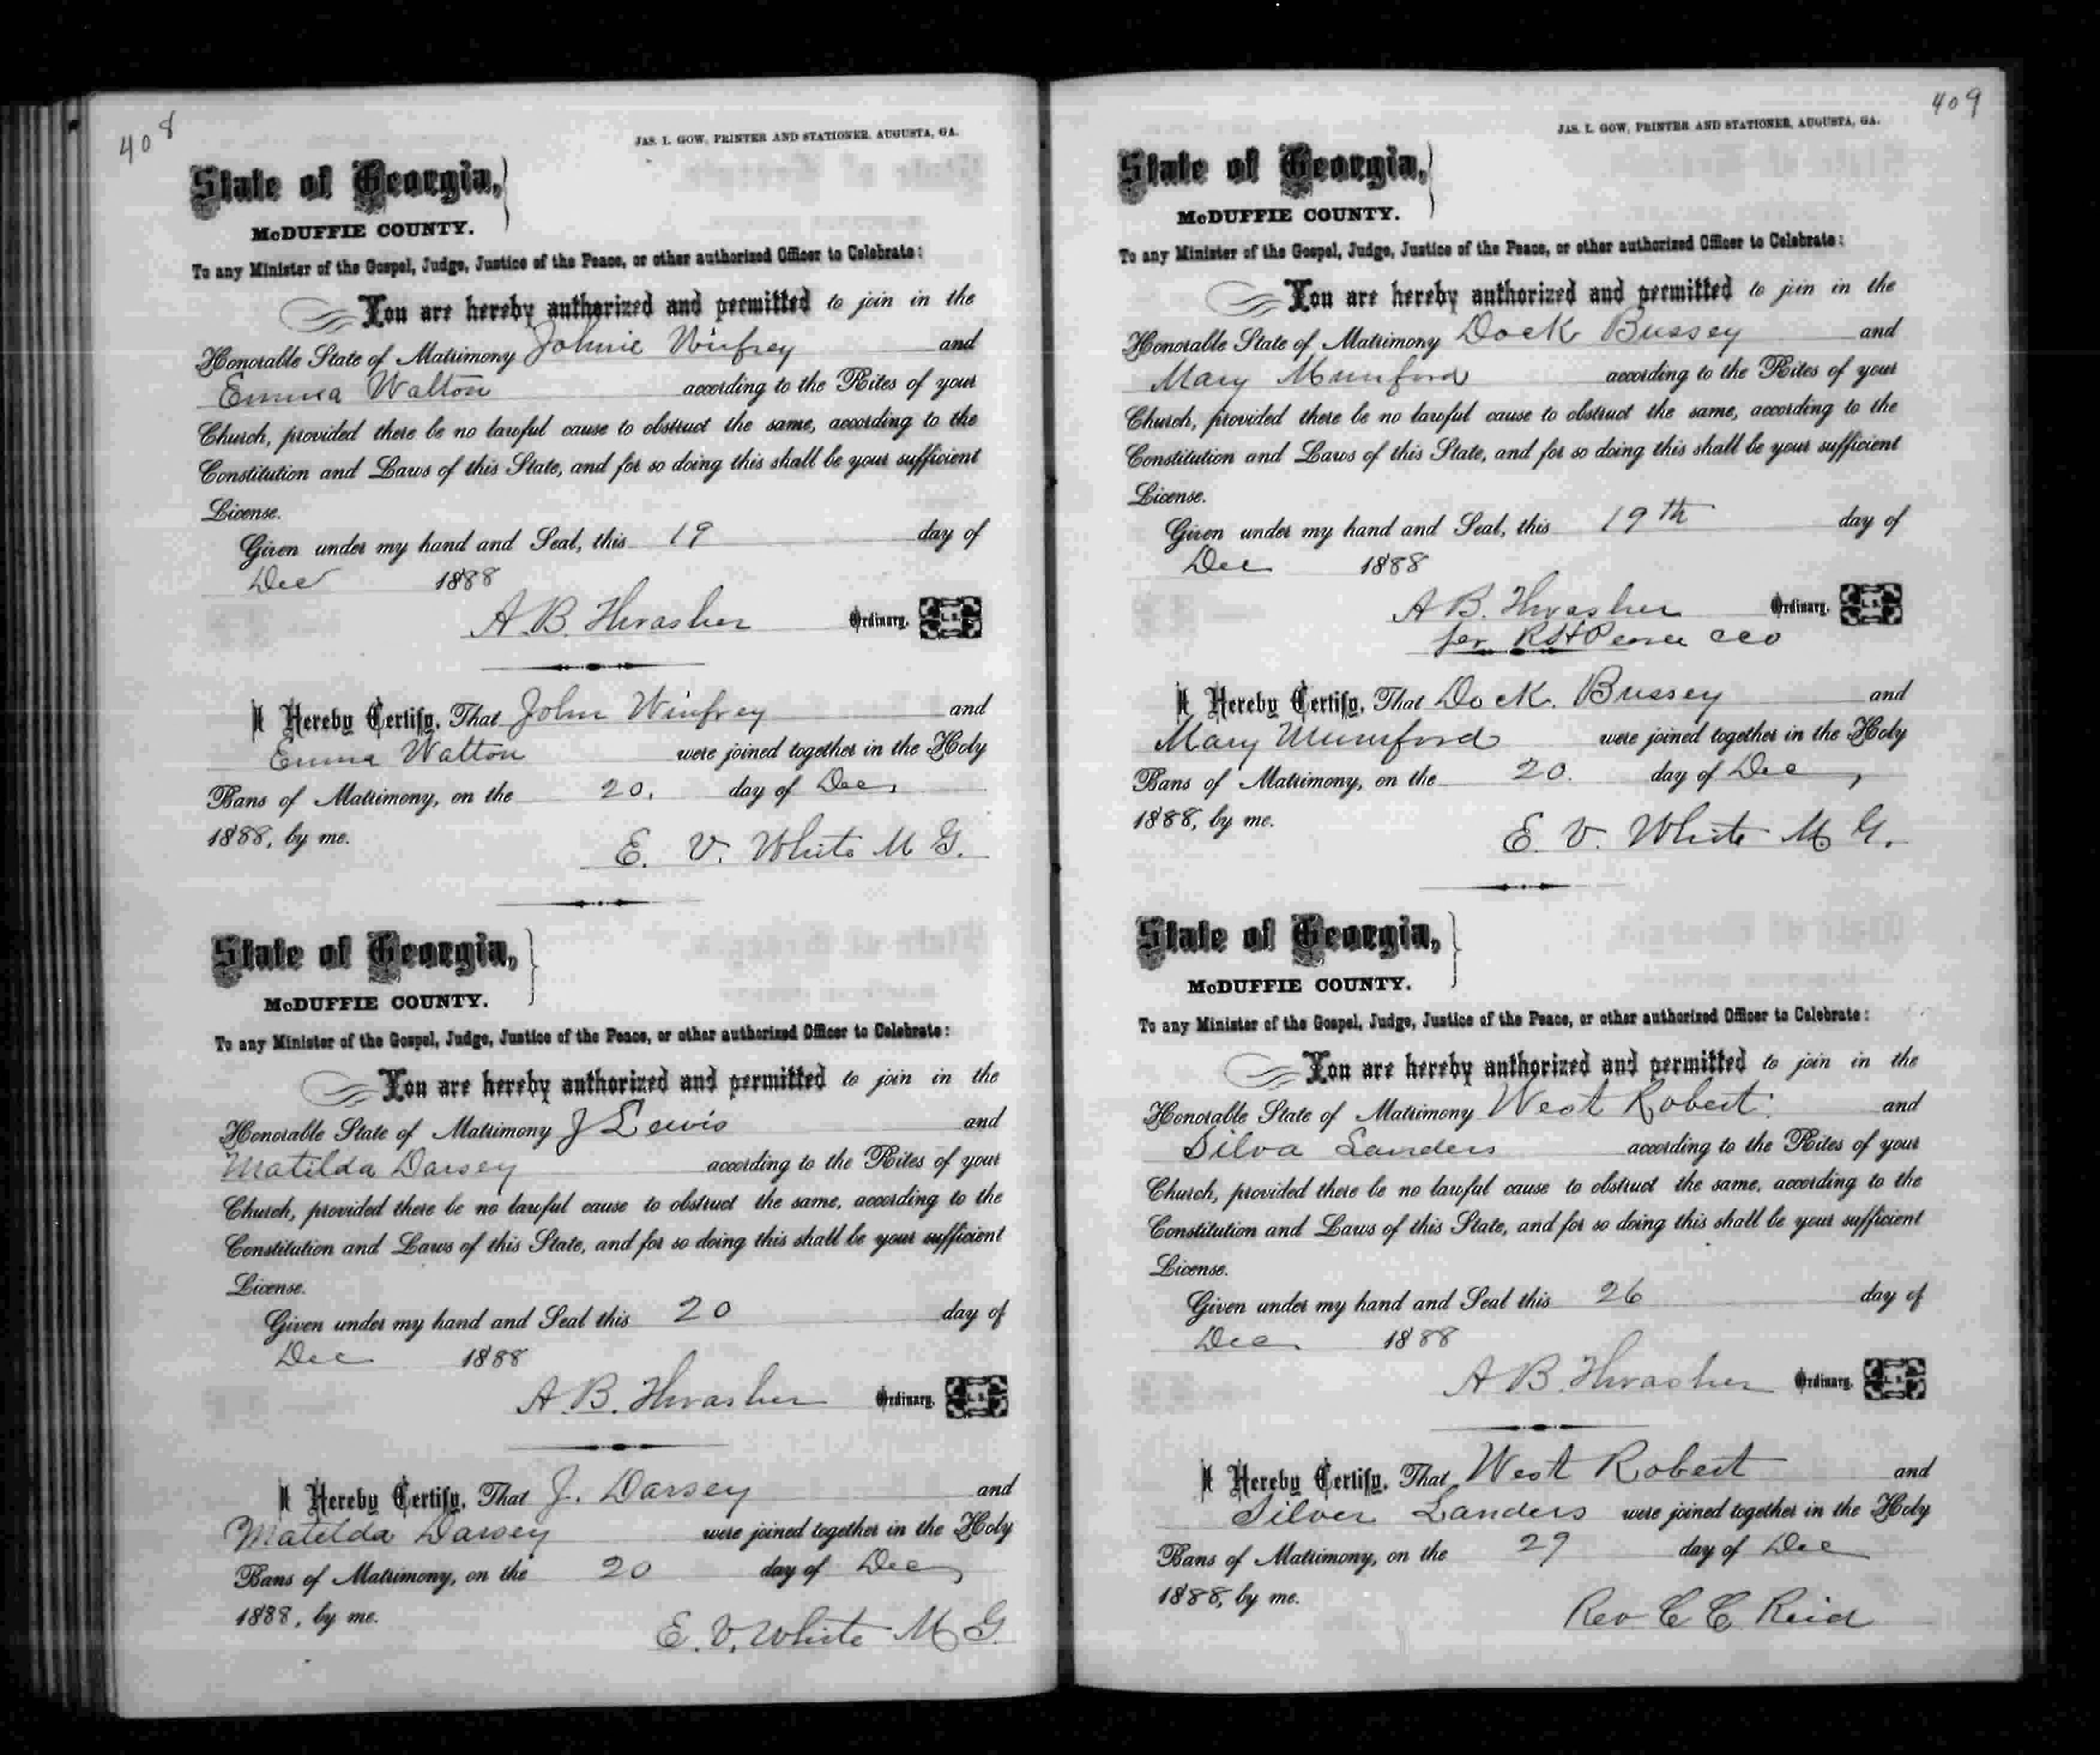 408
JAS. L. GOW, PRINTER AND STATIONER, AUGUSTA, GA.
State of Georgia,
McDUFFIE COUNTY.
To any Minister of the Gospel, Judge, Justice of the Peace, or other authorized Officer to Celebrate:
You are hereby authorized and permitted to join in the
Honorable State of Matrimony Johnie Winfrey and
Emma Walton according to the Rites of your
Church, provided there be no lawful cause to obstruct the same, according to the
Constitution and Laws of this State, and for so doing this shall be your sufficient
License.
Given under my hand and Seal, this 19 day of
Dec 1888
A. B. Thrasher Ordinary. L. S.
I Hereby Certify, That John Winfrey and
Emma Walton were joined together in the Holy
Bans of Matrimony, on the 20. day of Dec,
1888, by me.
E. V. White M G.
State of Georgia,
McDUFFIE COUNTY.
To any Minister of the Gospel, Judge, Justice of the Peace, or other authorized Officer to Celebrate:
You are hereby authorized and permitted to join in the
Honorable State of Matrimony J Lewis and
Matilda Darsey according to the Rites of your
Church, provided there be no lawful cause to obstruct the same, according to the
Constitution and Laws of this State, and for so doing this shall be your sufficient
License.
Given under my hand and Seal this 20 day of
Dec 1888
A. B. Thrasher Ordinary. L. S.
I Hereby Certify, That J. Darsey and
Matilda Darsey were joined together in the Holy
Bans of Matrimony, on the 20 day of Dec,
1888, by me.
E. V. White M G.
409
JAS. L. GOW, PRINTER AND STATIONER, AUGUSTA, GA.
State of Georgia,
McDUFFIE COUNTY.
To any Minister of the Gospel, Judge, Justice of the Peace, or other authorized Officer to Celebrate:
You are hereby authorized and permitted to join in the
Honorable State of Matrimony Dock Bussey and
Mary Mumford according to the Rites of your
Church, provided there be no lawful cause to obstruct the same, according to the
Constitution and Laws of this State, and for so doing this shall be your sufficient
License.
Given under my hand and Seal, this 19th day of
Dec 1888
A B. Thrasher Ordinary. L. S.
per R H Pearce CCO
I Hereby Certify, That Dock. Bussey and
Mary Mumford were joined together in the Holy
Bans of Matrimony, on the 20. day of Dec,
1888, by me.
E. V. White M G.
State of Georgia,
McDUFFIE COUNTY.
To any Minister of the Gospel, Judge, Justice of the Peace, or other authorized Officer to Celebrate:
You are hereby authorized and permitted to join in the
Honorable State of Matrimony West Robert. and
Silva Landers according to the Rites of your
Church, provided there be no lawful cause to obstruct the same, according to the
Constitution and Laws of this State, and for so doing this shall be your sufficient
License.
Given under my hand and Seal this 26 day of
Dec. 1888
A B. Thrasher Ordinary. L. S.
I Hereby Certify, That West Robert and
Silver Landers were joined together in the Holy
Bans of Matrimony, on the 27 day of Dec
1888, by me.
Rev C C Reid